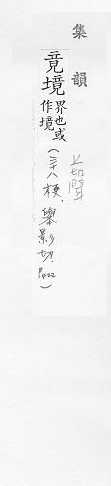 集韻
竟境界也或作境(三十八梗,舉影切,P422)
上聲